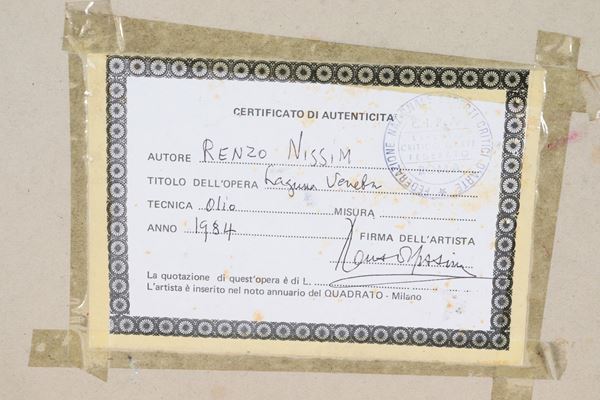 CERTIFICATO DI AUTENTICITA
AUTORE RENZO NISSIM
TITOLO DELL'OPERA Laguna Veneta
TECNICA Olio MISURA
ANNO 1984
FIRMA DELL'ARTISTA
La quotazione di quest'opera è di L.
L'artista è inserito nel noto annuario del QUADRATO - Milano